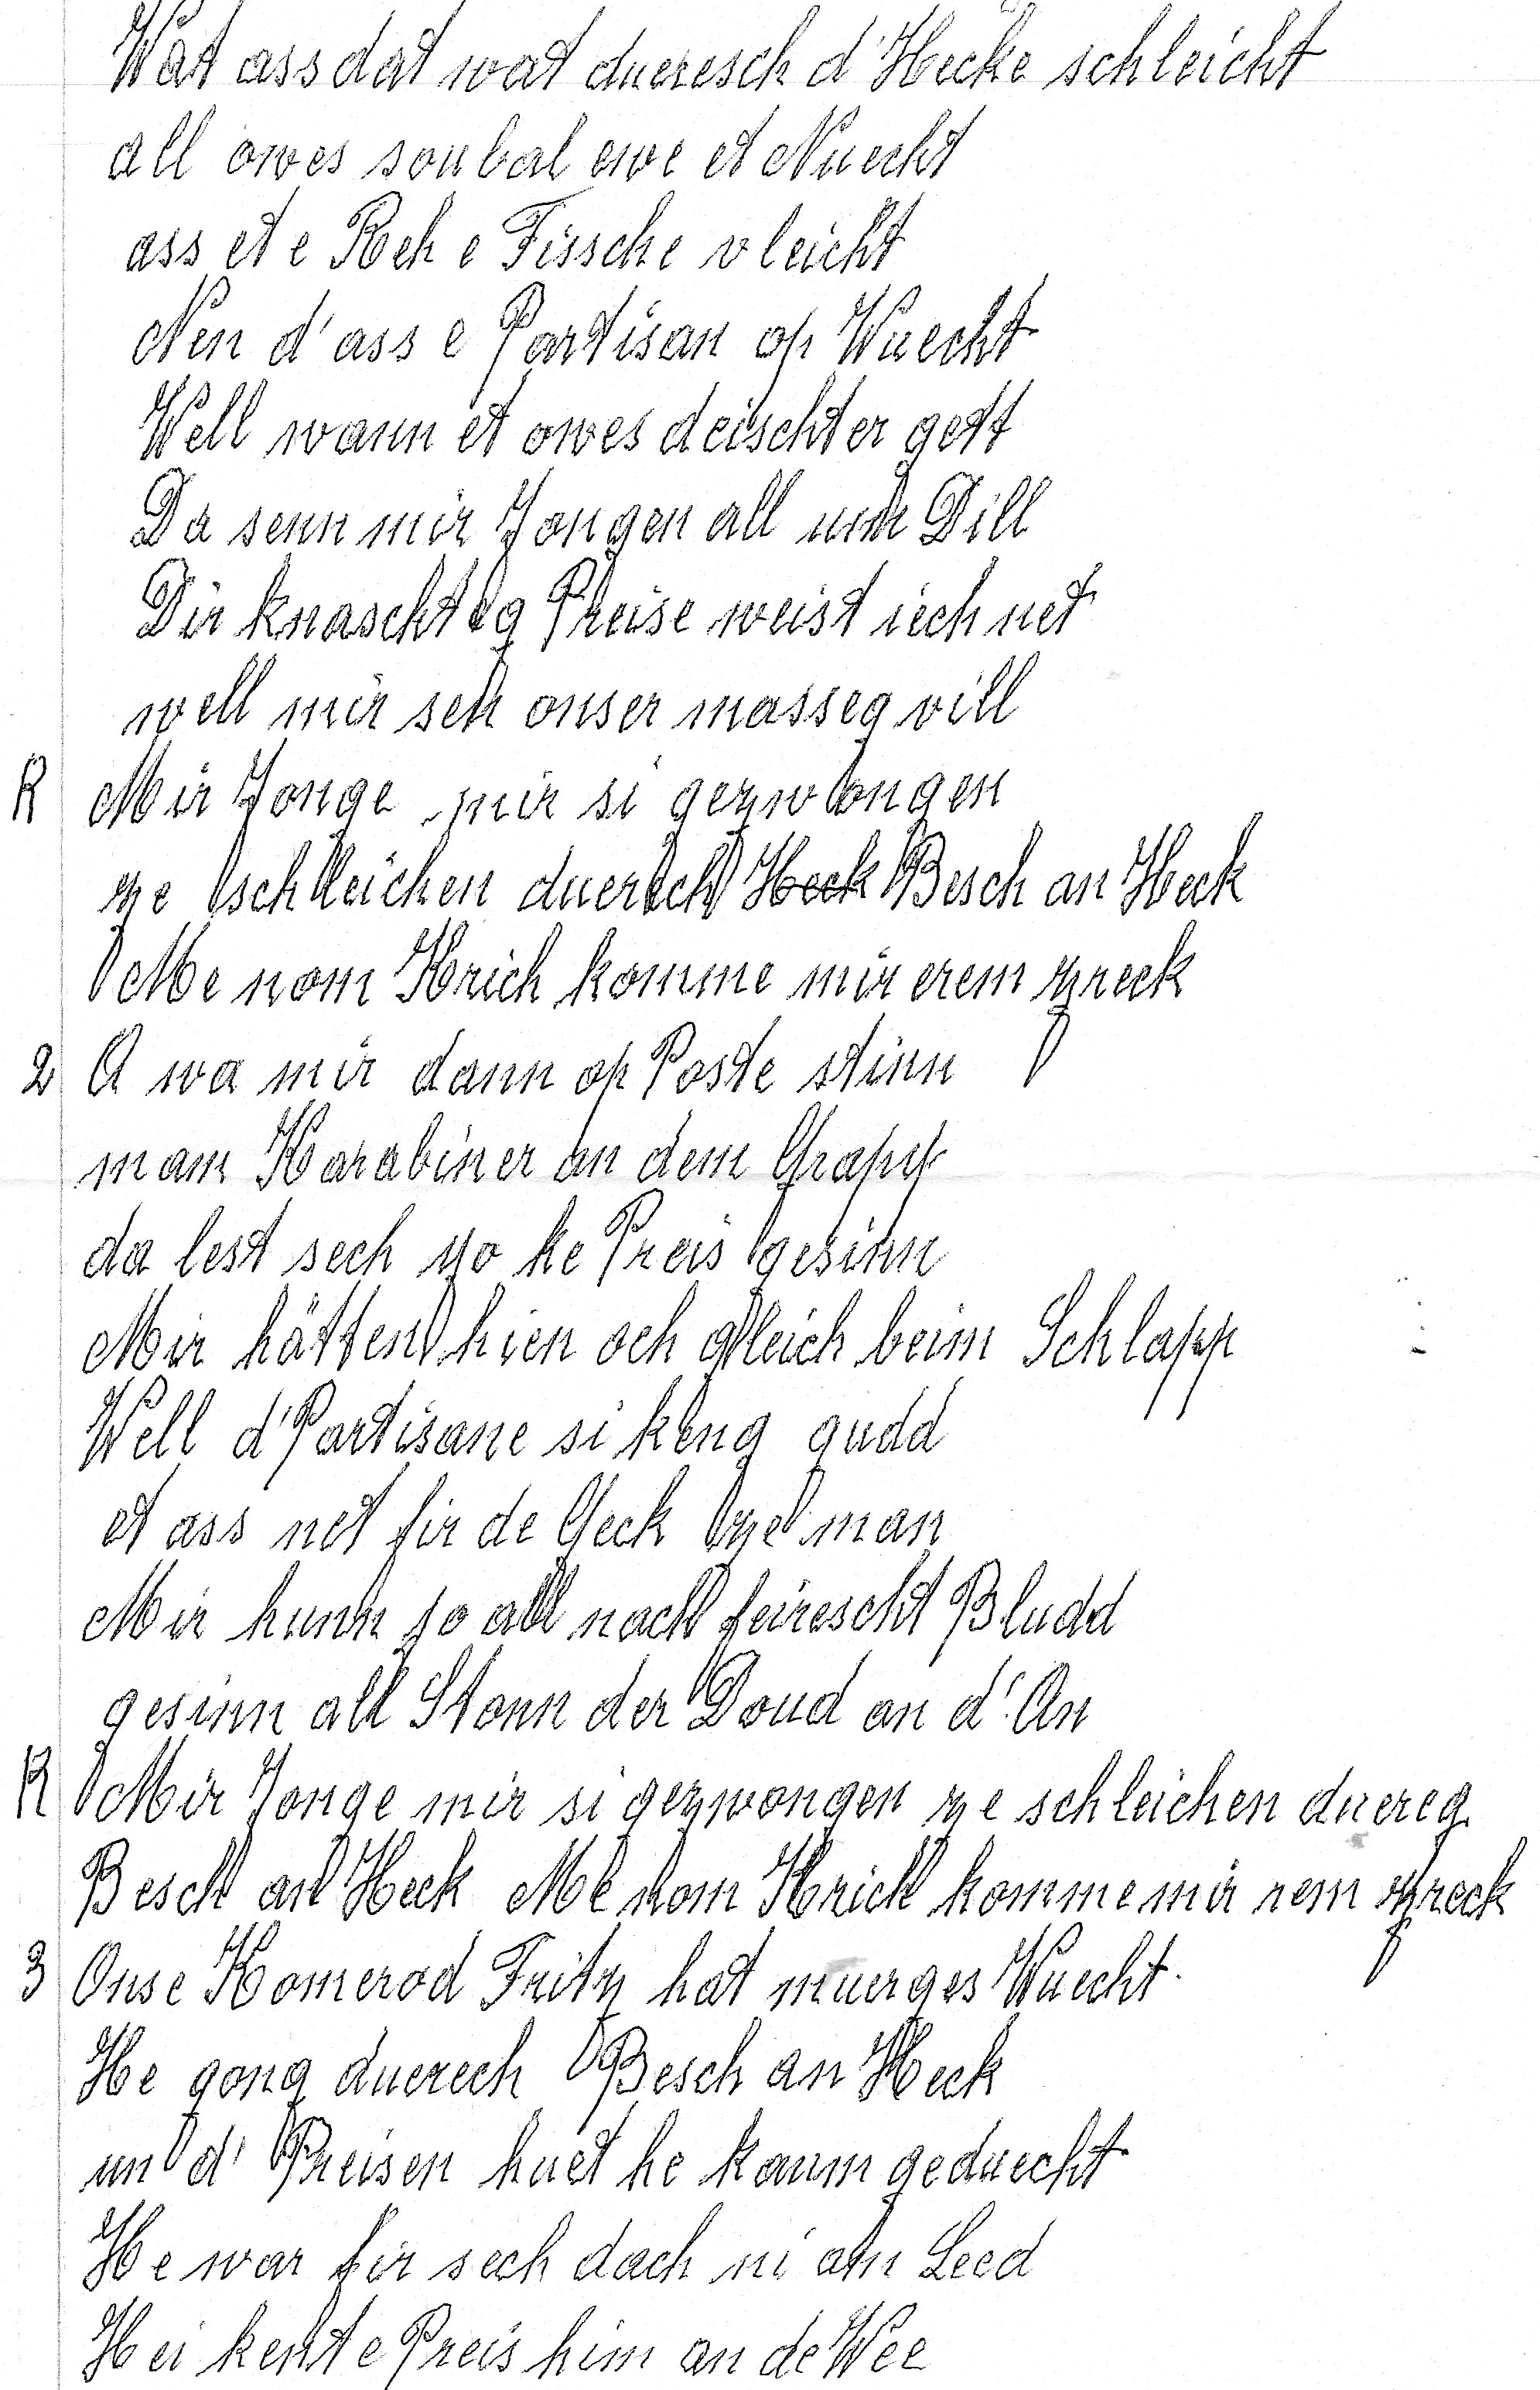 Wat ass dat wat dueresch d'Hecke schleicht
all owes soubal ewe et Nuecht
ass et e Reh e Fissche vleicht
Nen d'ass e Partisan op Wuecht
Well wann et owes deischter gett
Da senn mir Jongen all um Dill
Dir knaschteg Preise weist iech net
well mir seh onser masseg vill
R Mir Jonge mir si gezwongen
ze schleichen duerech Heck Besch an Heck
Me vom Krich komme mir erem zreck
2 A wa mir dann op Poste stinn
mam Karabiner an dem Grapp
da lest sech jo ke Preis gesinn
Mir hätten hien och gleich beim Schlapp
Well d'Partisane si keng gudd
et ass net fir de Geck ze man
Mir hunn jo all nach feirescht Bludd
gesinn all Stonn der Doud an d'An
R Mir Jonge mir si gezwongen ze schleichen duereg
Besch an Heck Me vom Krich komme mir rem zreck
3 Onse Komerod Fritz hat muerges Wuecht.
He gong duerech Besch an Heck
un d'Preisen huet he kaum geduecht
He war fir sech dach ni am Leed
Hei kennt e Preis him an de Wee